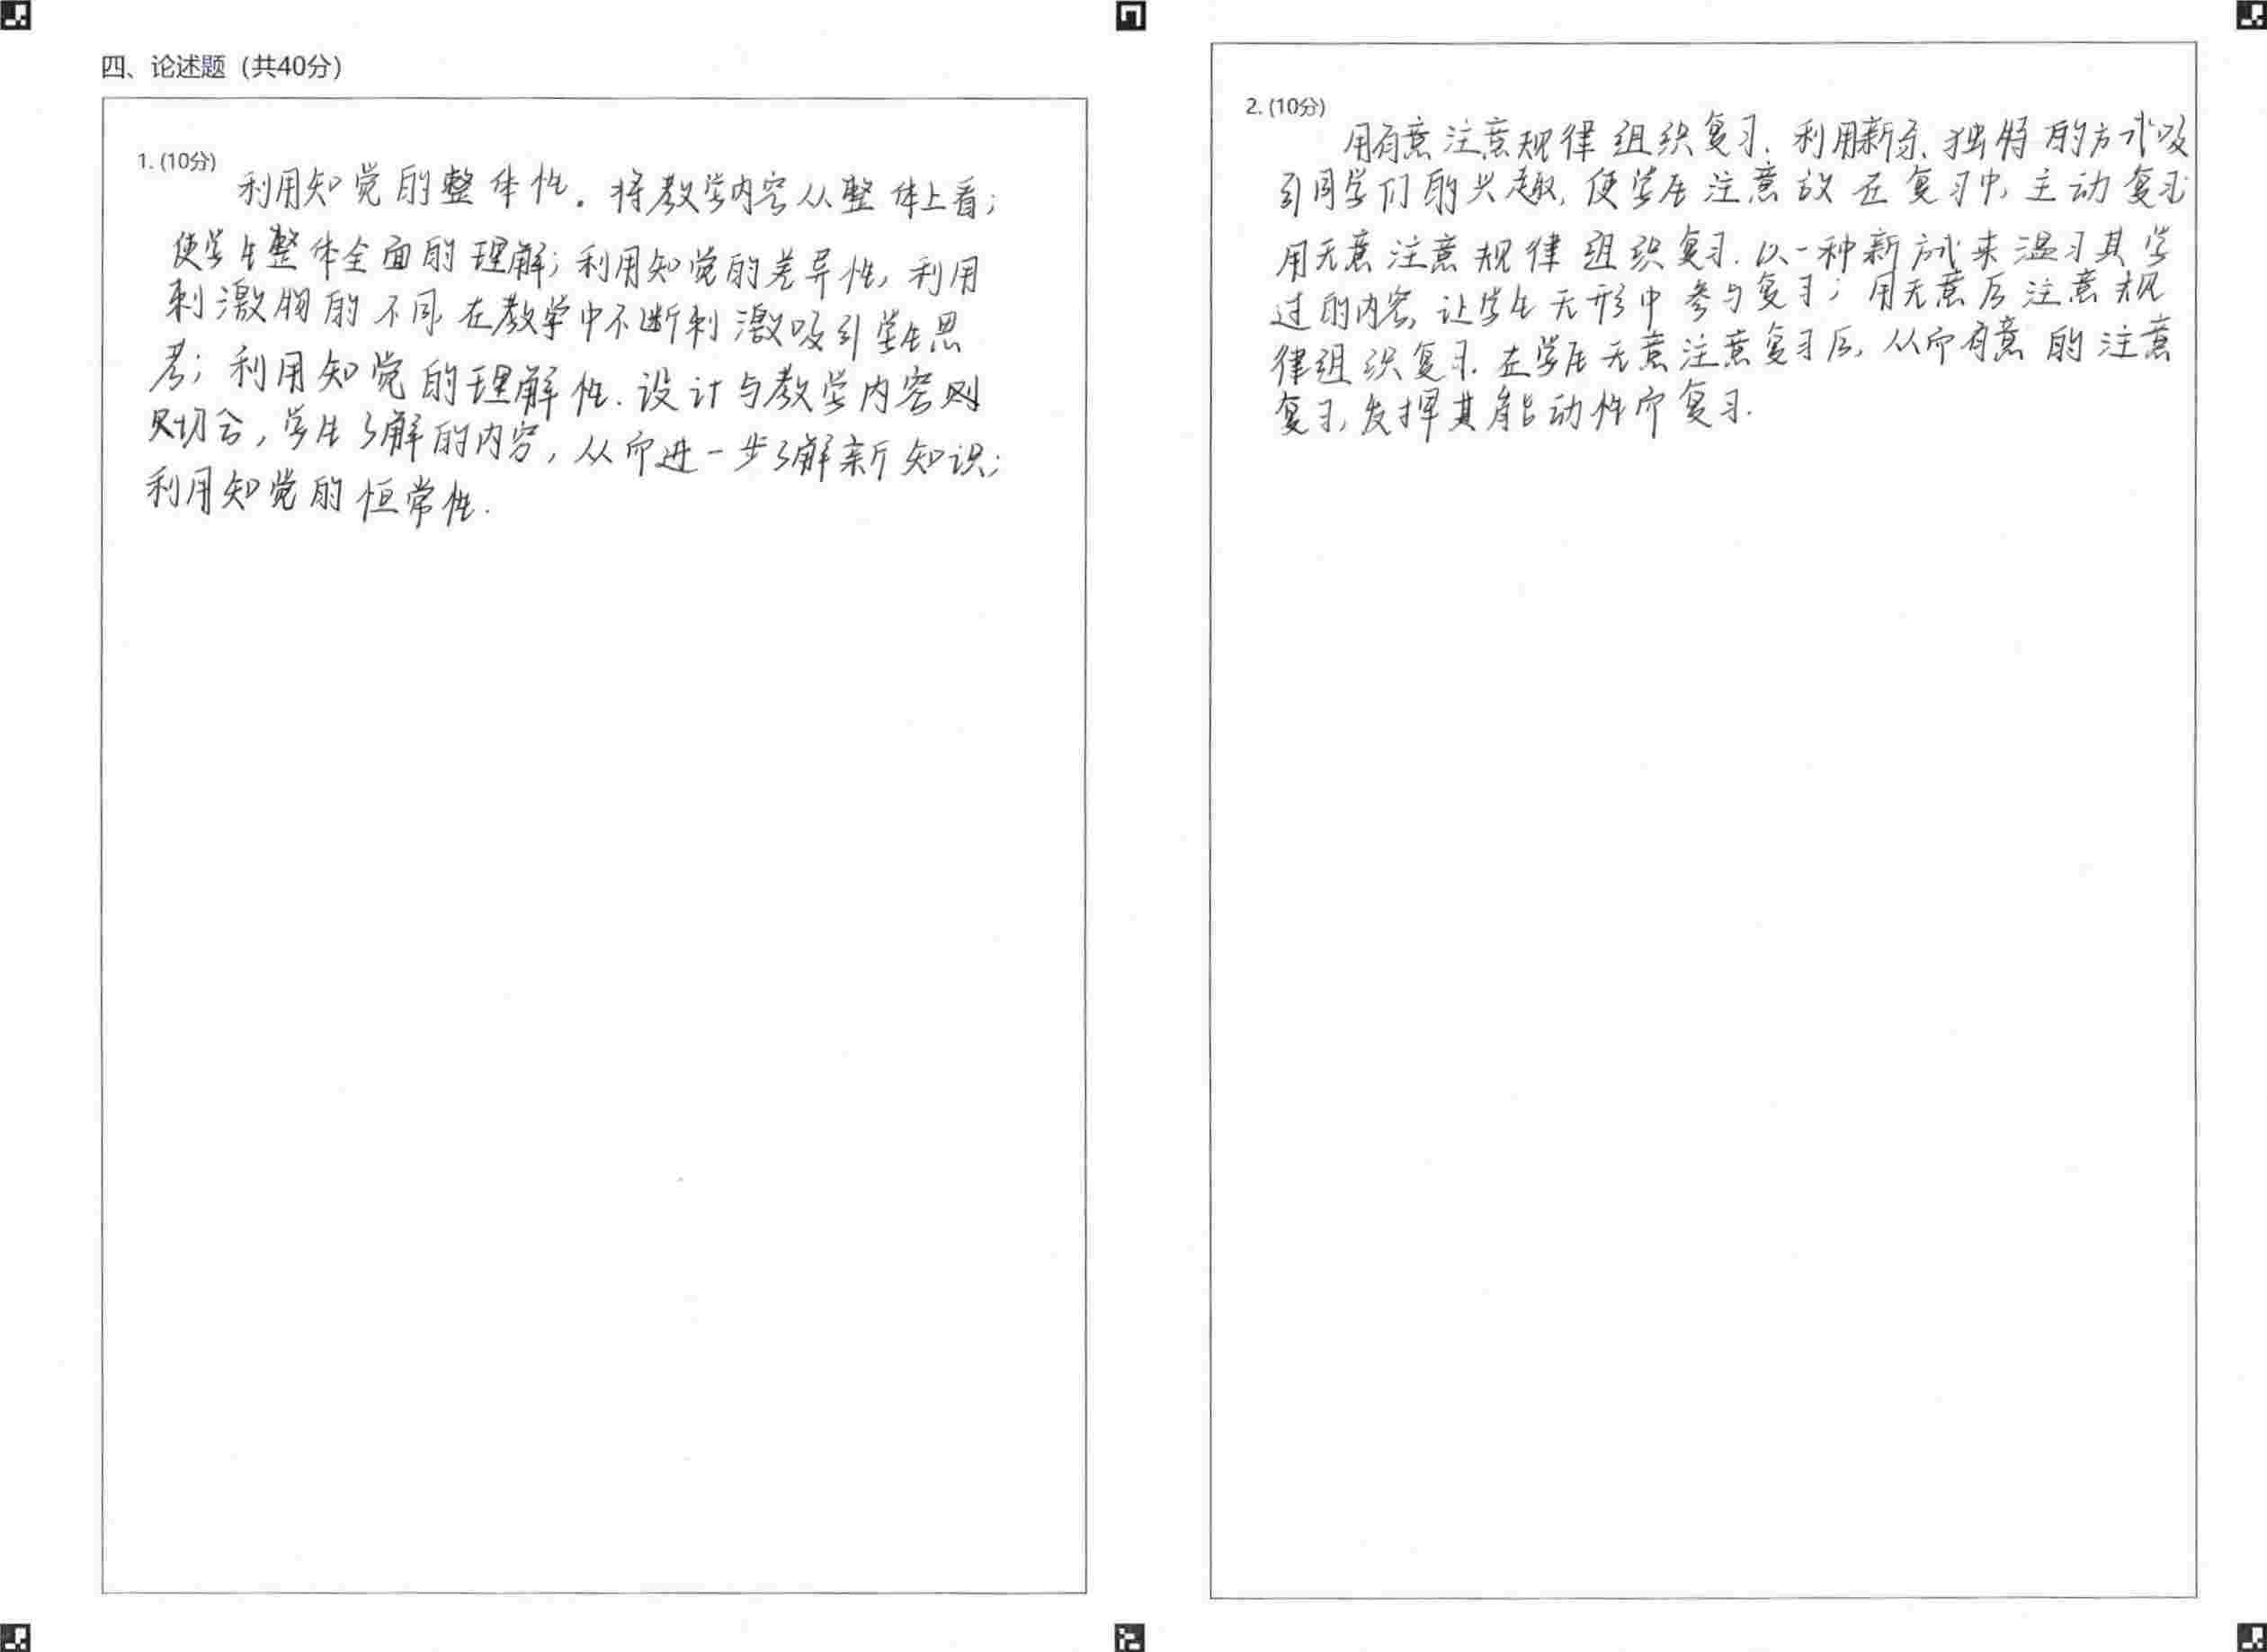 四、论述题（共40分）
1. (10分)
利用知觉的整体性。将教学内容从整体上看；
使学生整体全面的理解；利用知觉的差异性，利用
刺激物的不同，在教学中不断刺激吸引学生思
考；利用知觉的理解性．设计与教学内容
切合，学生了解的内容，从而进一步了解新知识；
利用知觉的恒常性．
2. (10分)
用有意注意规律组织复习．利用新奇、独特的方式吸
引同学们的兴趣，使学生注意放在复习中，主动复习
用无意注意规律组织复习．以一种新方式来温习其学
过的内容，让学生无形中参与复习；用无意后注意规
律组织复习．在学生无意注意复习后，从而有意的注意
复习，发挥其能动性而复习．